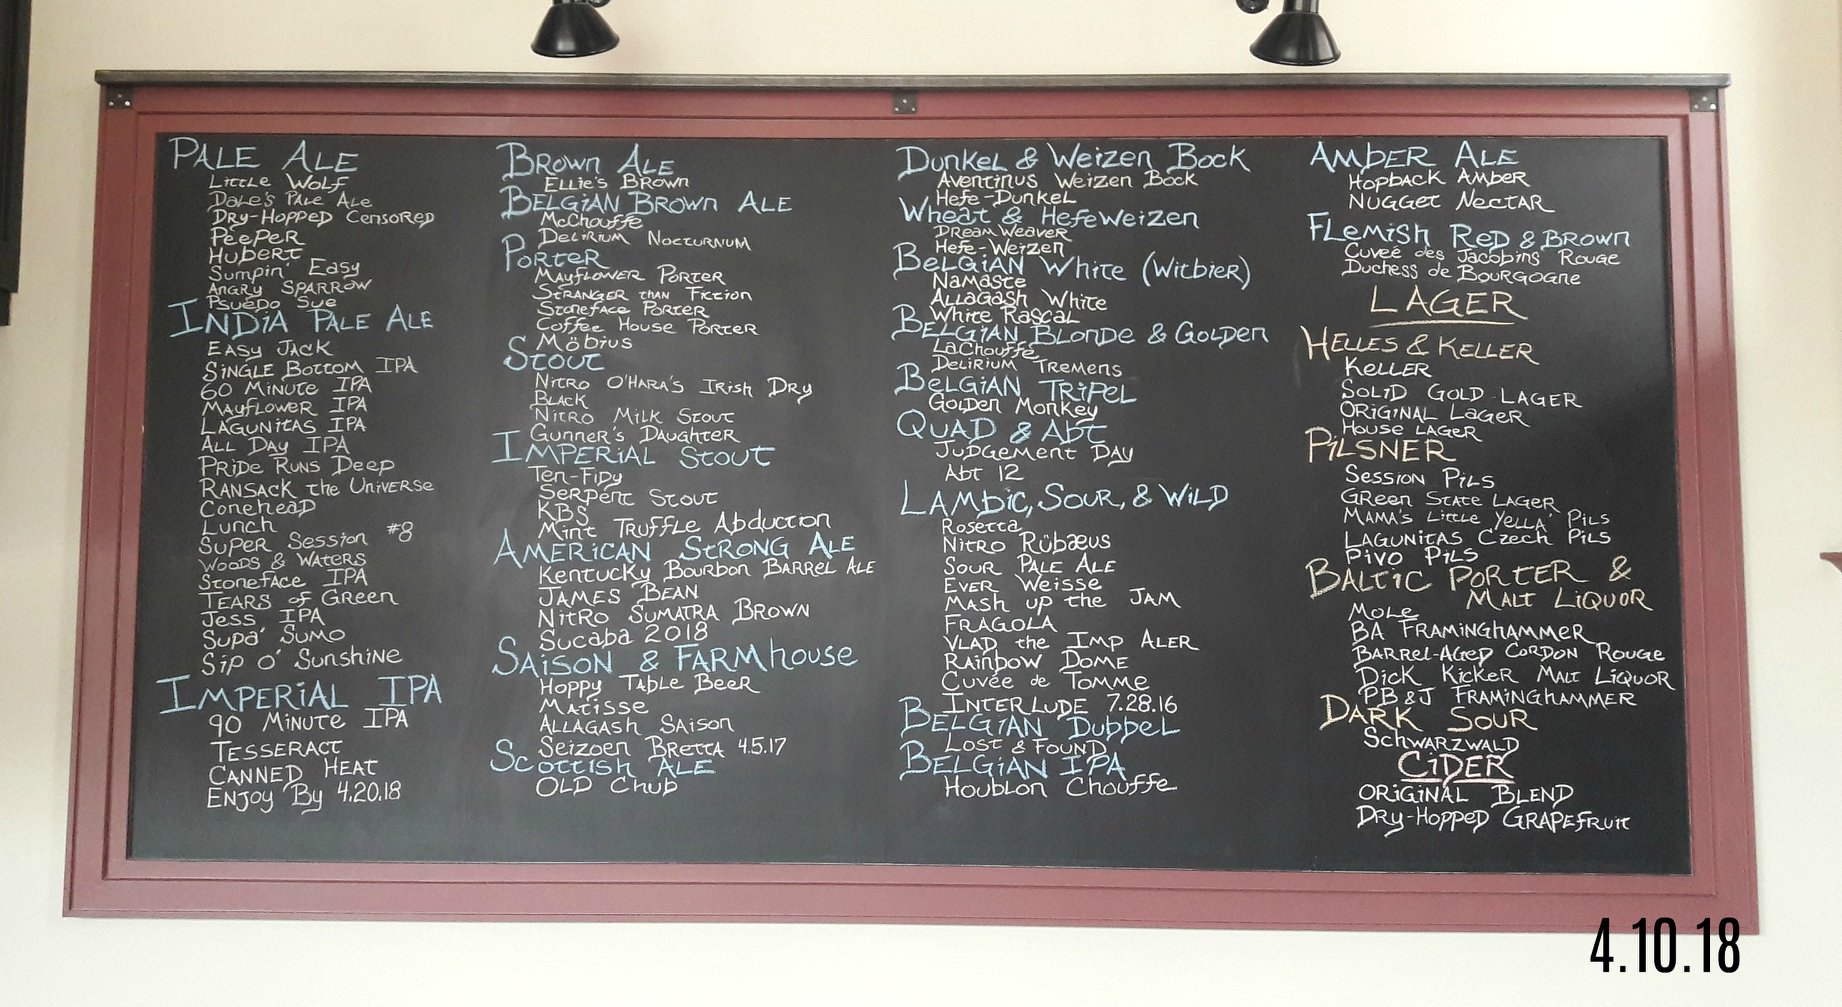 PALE ALE
Little Wolf
Dale's Pale Ale
Dry-Hopped Censored
Peeper
Hubert
Sumpin' Easy
Angry Sparrow
Psuedo Sue
India Pale Ale
Easy Jack
Single Bottom IPA
60 Minute IPA
Mayflower IPA
Lagunitas IPA
All Day IPA
Pride Runs Deep
Ransack the Universe
Conehead
Lunch
Super Session #8
Woods & Waters
Stoneface IPA
Tears of Green
Jess IPA
Supa' Sumo
Sip O' Sunshine
Imperial IPA
90 Minute IPA
Tesseract
Canned Heat
Enjoy By 4.20.18
Brown Ale
Ellie's Brown
Belgian Brown Ale
McChouffe
Delirium Nocturnum
Porter
Mayflower Porter
Stranger than Fiction
Stoneface Porter
Coffee House Porter
Möbius
Stout
Nitro O'Hara's Irish Dry
Black
Nitro Milk Stout
Gunner's Daughter
Imperial Stout
Ten-Fidy
Serpent Stout
KBS
Mint Truffle Abduction
American Strong Ale
Kentucky Bourbon Barrel Ale
James Bean
Nitro Sumatra Brown
Sucaba 2018
Saison & Farmhouse
Hoppy Table Beer
Matisse
Allagash Saison
Seizoen Bretta 4.5.17
Scottish Ale
Old Chub
Dunkel & Weizen Bock
Aventinus Weizen Bock
Hefe-Dunkel
Wheat & Hefeweizen
Dream Weaver
Hefe-Weizen
Belgian White (Witbier)
Namaste
Allagash White
White Rascal
Belgian Blonde & Golden
LaChouffe
Delirium Tremens
Belgian Tripel
Golden Monkey
Quad & Abt
Judgement Day
Abt 12
Lambic, Sour, & Wild
Rosetta
Nitro Rübæus
Sour Pale Ale
Ever Weisse
Mash up the Jam
Fragola
Vlad the Imp Aler
Rainbow Dome
Cuvée de Tomme
Interlude 7.28.16
Belgian Dubbel
Lost & Found
Belgian IPA
Houblon Chouffe
Amber Ale
Hopback Amber
Nugget Nectar
Flemish Red & Brown
Cuveé des Jacobins Rouge
Duchess de Bourgogne
LAGER
Helles & Keller
Keller
Solid Gold Lager
Original Lager
House Lager
Pilsner
Session Pils
Green State Lager
Mama's Little Yella' Pils
Lagunitas Czech Pils
Pivo Pils
Baltic Porter &
Malt Liquor
Mole
BA Framinghammer
Barrel-Aged Cordon Rouge
Dick Kicker Malt Liquor
PB&J Framinghammer
Dark Sour
Schwarzwald
CiDER
Original Blend
Dry-Hopped Grapefruit
4.10.18